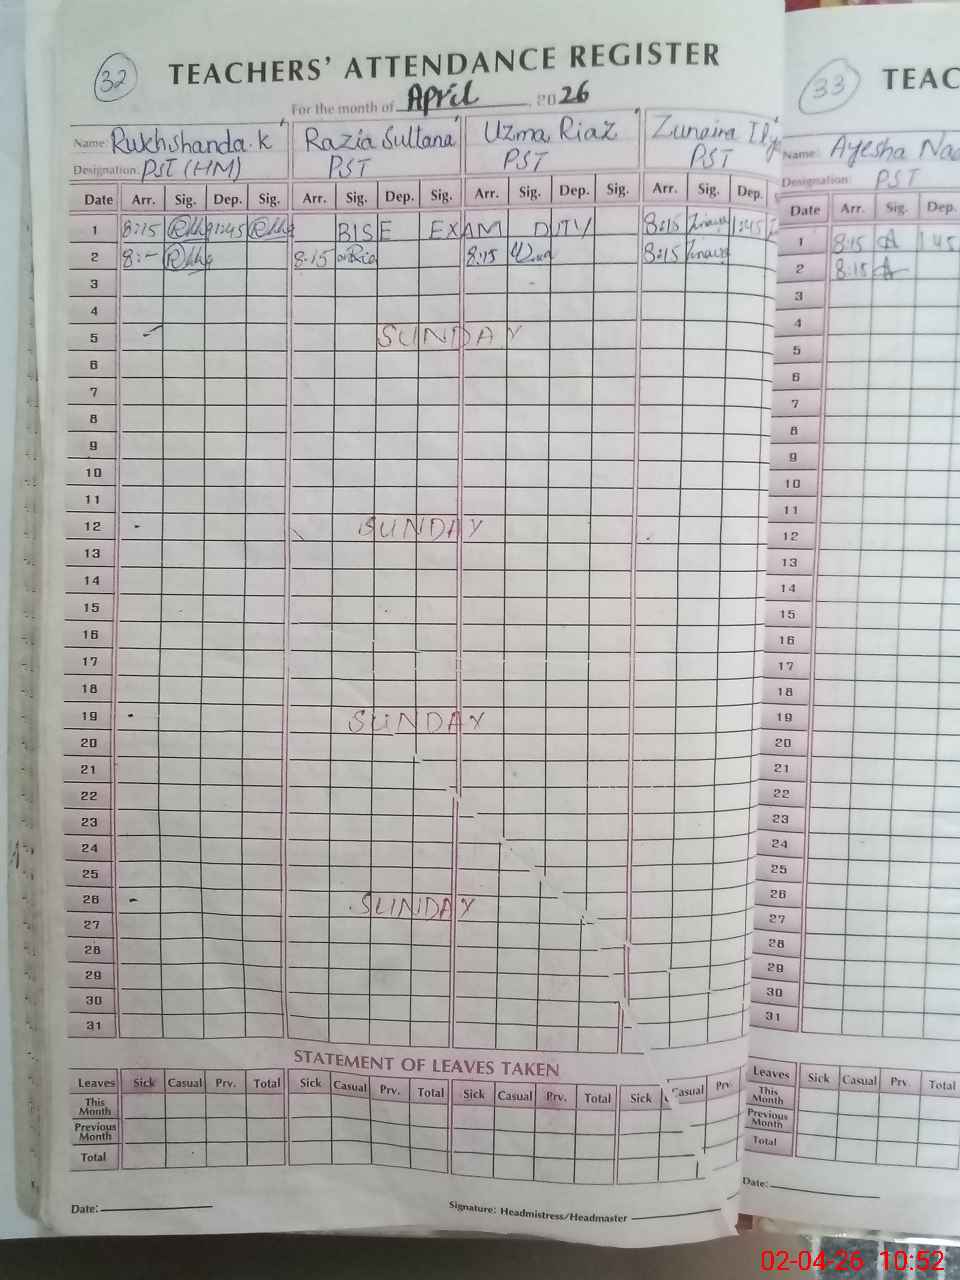 32 TEACHERS' ATTENDANCE REGISTER
For the month of April, 2026
Name: Rukhshanda.K Razia Sultana Uzma Riaz Zunaira
Designation: PST (HM) PST PST PST
Date Arr. Sig. Dep. Sig. Arr. Sig. Dep. Sig. Arr. Sig. Dep. Sig. Arr. Sig. Dep.
1 8:15 1:45 BISE EXAM DUTY 8:15 1:45
2 8:- 8:15 8:15 8:15
3
4
5 SUNDAY
6
7
8
9
10
11
12 SUNDAY
13
14
15
16
17
18
19 SUNDAY
20
21
22
23
24
25
26 SUNDAY
27
28
29
30
31
STATEMENT OF LEAVES TAKEN
Leaves Sick Casual Prv. Total Sick Casual Prv. Total Sick Casual Prv. Total Sick Casual Prv.
This Month
Previous Month
Total
Date: Signature: Headmistress/Headmaster
33 TEAC
Name: Ayesha
Designation: PST
Date Arr. Sig. Dep.
1 8:15 1:45
2 8:15
3
4
5
6
7
8
9
10
11
12
13
14
15
16
17
18
19
20
21
22
23
24
25
26
27
28
29
30
31
Leaves Sick Casual Prv. Total
This Month
Previous Month
Total
Date:
02-04-26 10:52